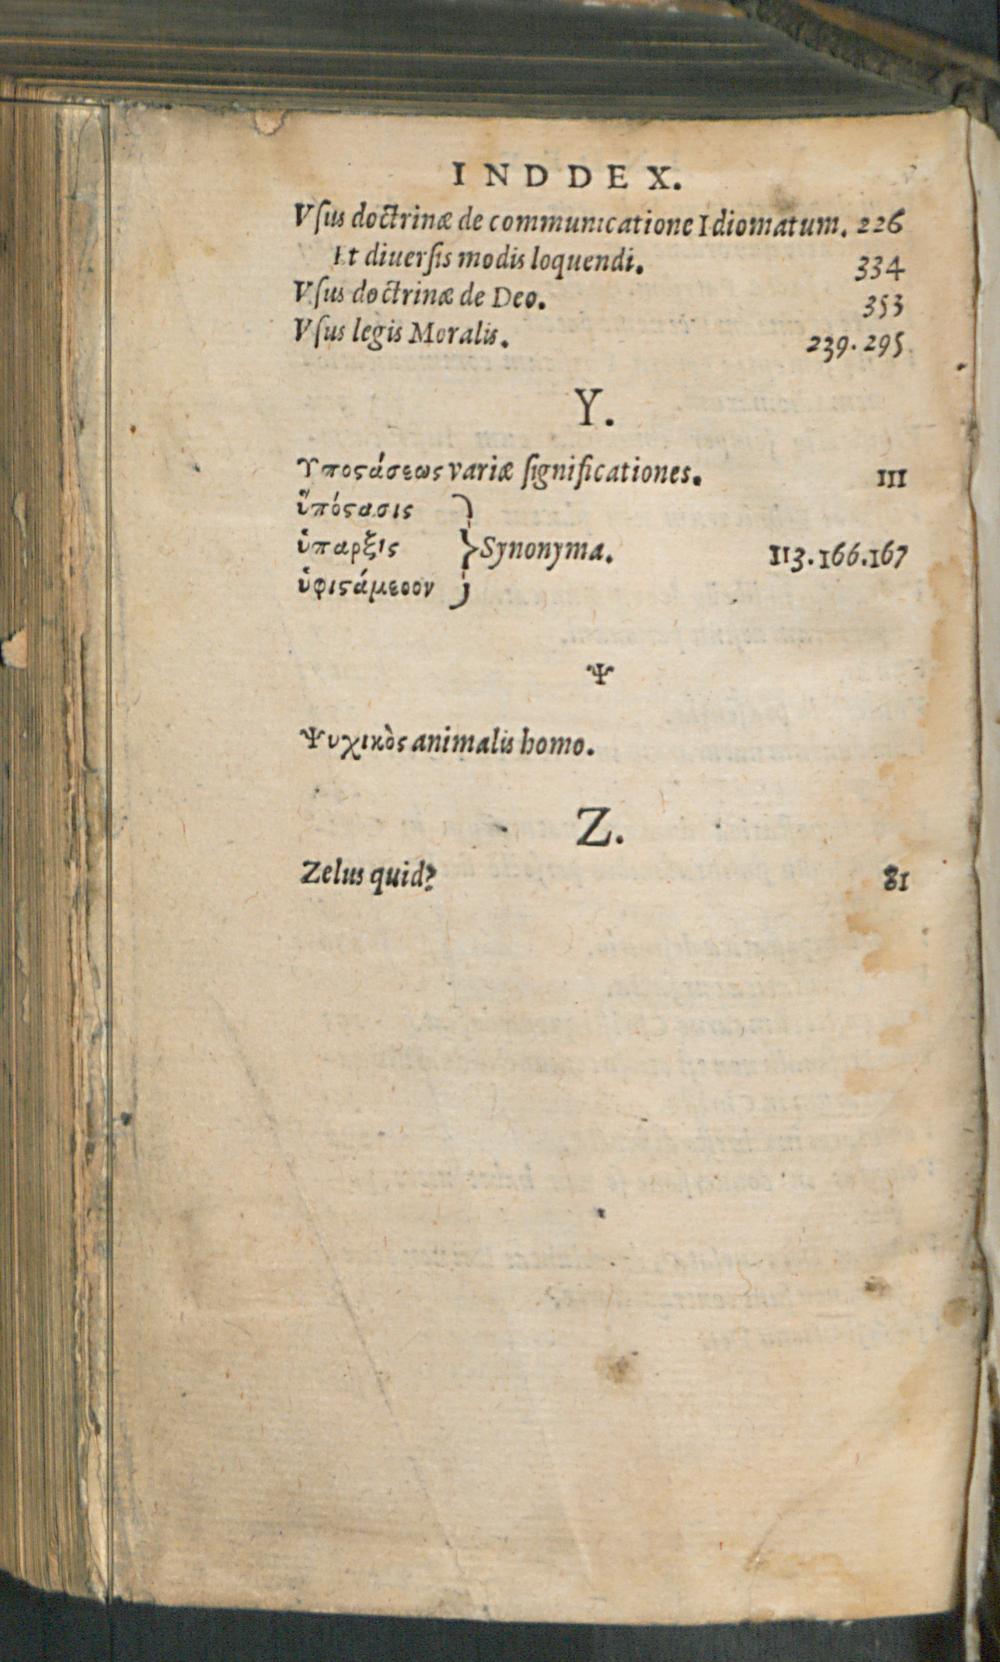 INDDEX.
Vſus doctrinæ de communicatione Idiomatum. 226
Et diuerſis modis loquendi. 334
Vſus doctrinæ de Deo. 353
Vſus legis Moralis. 239. 295
Y.
Υποϛάσεως variæ ſignificationes. 111
ὕπόϛασις
ὕπαρξις } Synonyma. 113.166.167
ὑφιϛάμεοον
Ψ
Ψυχικὸς animalis homo.
Z.
Zelus quid? 81